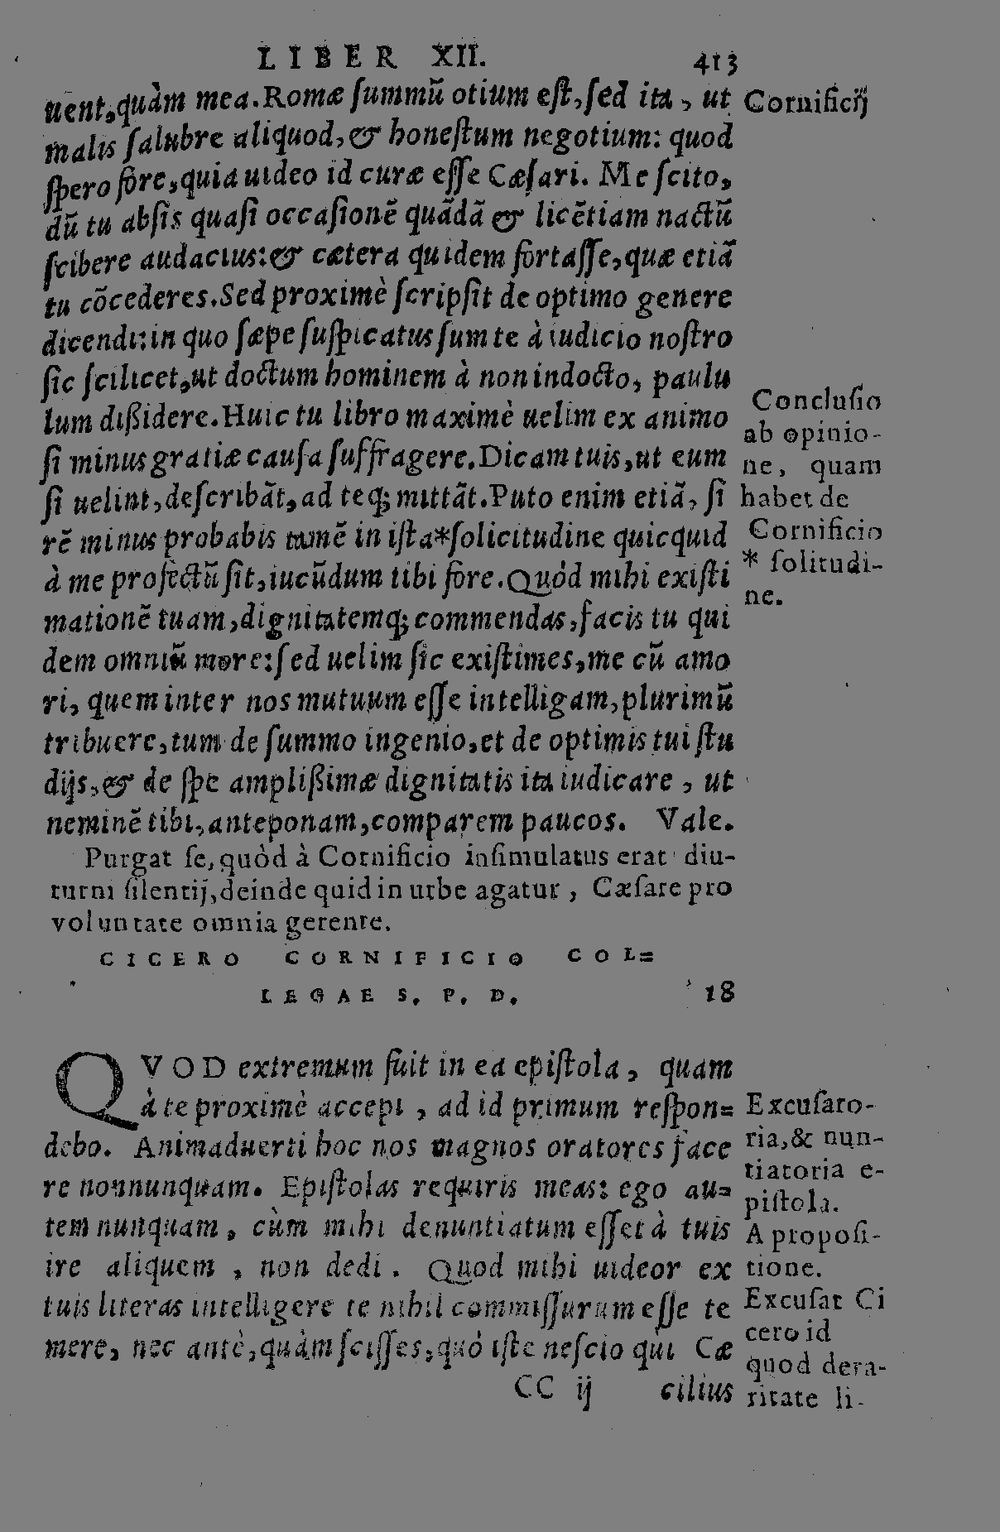 LIBER XII. 413
uent,quàm mea.Romæ ſummũ otium eſt,ſed ita , ut
malis ſalubre aliquod,& honeſtum negotium: quod
ſpero fore,quia uideo id curæ eſſe Cæſari. Me ſcito,
dũ tu abſis quaſi occaſionẽ quãdã & licẽtiam nactũ
ſcibere audacius:& cætera quidem fortaſſe,quæ etiã
tu cõcederes.Sed proximè ſcripſit de optimo genere
dicendi:in quo ſæpe ſuſpicatus ſum te à iudicio noſtro
ſic ſcilicet,ut doctum hominem à non indocto, paulu
lum dißidere.Huic tu libro maximè uelim ex animo
ſi minus gratiæ cauſa ſuffragere.Dicam tuis,ut eum
ſi uelint,deſcribãt,ad teq; mittãt.Puto enim etiã, ſi
rẽ minus probabis tamẽ in iſta*ſolicitudine quicquid
à me profectũ ſit,iucũdum tibi fore.Quòd mihi exiſti
mationẽ tuam,dignitatemq; commendas,facis tu qui
dem omniũ more:ſed uelim ſic exiſtimes,me cũ amo
ri, quem inter nos mutuum eſſe intelligam,plurimũ
tribuere,tum de ſummo ingenio,et de optimis tui ſtu
dijs,& de ſpe amplißimæ dignitatis ita iudicare , ut
neminẽ tibi,anteponam,comparem paucos. Vale.
Cornificij
Concluſio
ab opinio-
ne, quam
habet de
Cornificio
* ſolitudi-
ne.
Purgat ſe,quòd à Cornificio inſimulatus erat diu-
turni ſilentij,deinde quid in urbe agatur , Cæſare pro
voluntate omnia gerente.
CICERO CORNIFICIO COL=
LEGAE S. P. D. 18
QVOD extremum fuit in ea epiſtola, quam
à te proximè accepi , ad id primum reſpon=
debo. Animaduerti hoc nos magnos oratores face
re nonnunquam. Epiſtolas requiris meas: ego au=
tem nunquam, cùm mihi denuntiatum eſſet à tuis
ire aliquem , non dedi. Quod mihi uideor ex
tuis literas intelligere te nihil commiſſurum eſſe te
mere, nec antè,quàm ſciſſes,quò iſte neſcio qui Cæ
CC ij cilius
Excuſato-
ria,& nun-
tiatoria e-
piſtola.
A propoſi-
tione.
Excuſat Ci
cero id
quod dera-
ritate li-